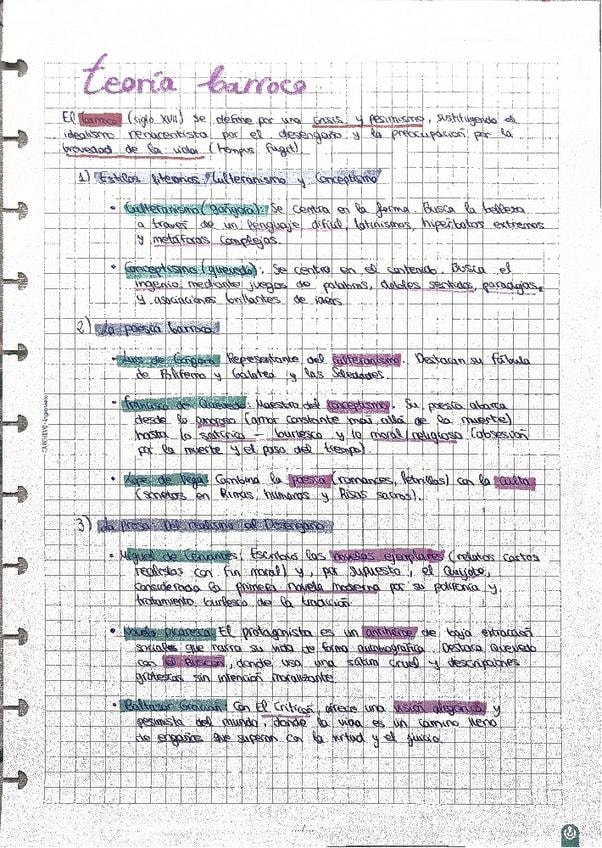 teoría barroco
El barroco (siglo XVII) se define por una crisis y pesimismo, sustituyendo el
idealismo renacentista por el desengaño y la preocupación por la
brevedad de la vida (tempus fugit).
1) Estilos literarios: Culteranismo y Conceptismo
• Culteranismo (góngora): Se centra en la forma. Busca la belleza
a través de un lenguaje difícil, latinismos, hipérbatos extremos
y metáforas complejas.
• Conceptismo (quevedo). Se centra en el contenido. Busca el
ingenio mediante juegos de palabras, dobles sentidos, paradojas,
y asociaciones brillantes de ideas.
2) La poesía barroca
• Luis de Góngora Representante del culteranismo. Destacan su fábula
de Polifemo y Galatea y las Soledades.
• Francisco de Quevedo: Maestro del conceptismo. Su poesía abarca
desde lo (amor constante más allá de la muerte)
hasta lo satírico - burlesco y lo moral/religioso (obsesión
por la muerte y el paso del tiempo).
• Lope de Vega Combina la poesía (romances, letrillas) con la culta
(sonetos en Rimas, humanas y Risas sacras).
3) La prosa: Del realismo al Desengaño
• Miguel de Cervantes; Escribió las novelas ejemplares (relatos cortos
realistas con fin moral) y, por supuesto, el Quijote,
considerada la primera novela moderna por su polifonía y
tratamiento burlesco de la tradición.
• Novela picaresca El protagonista es un antihéroe de baja extracción
sociales que narra su vida de forma autobiográfica. Destaca Quevedo
con el Buscón, donde usa una sátira cruel y descripciones
grotescas sin intención moralizante
• Baltasar Gracián Con El Criticón, ofrece una visión alegórica y
pesimista del mundo, donde la vida es un camino lleno
de engaños que superan con la virtud y el juicio.